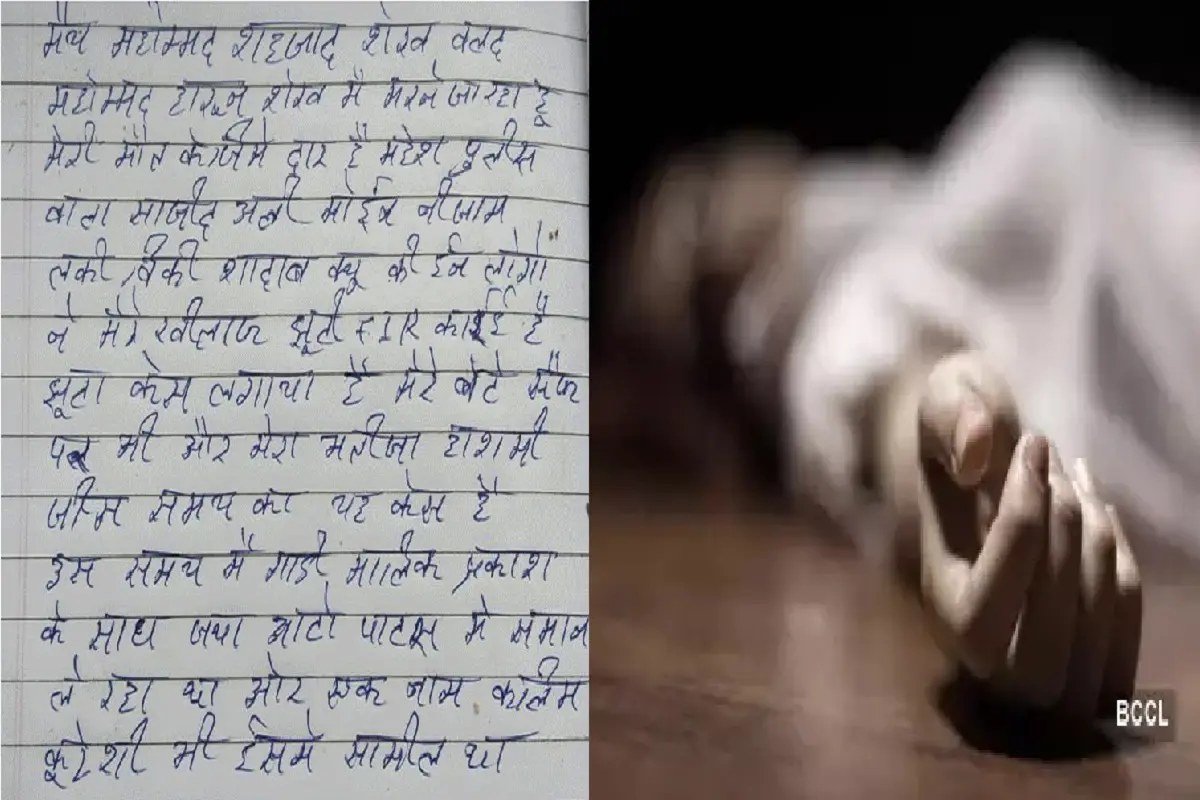 मैय महोम्मद शहजाद शेख वलद
महोम्मद हारून शेख मै मरने जा रहा हू
मेरी मौत के जीमे दार है महेश पुलीस
वाला माजीद अली मोईन नीजाम
लकी विकी शादाब क्यू की ईन लोगो
ने मेरे खीलाफ झूटी FIR काईई है
झूटा केस लगाया है मेरे बेटे सैफ
पर भी और मेरा भतीजा हाशमी
जीस समय का यह केस है
इस समय मै गाडी मालिक प्रकाश
के साथ जया ओटो पाटस मे समान
ले रहा था ओर एक नाम कालीम
कूरेशी भी ईसमे सामील था
BCCL